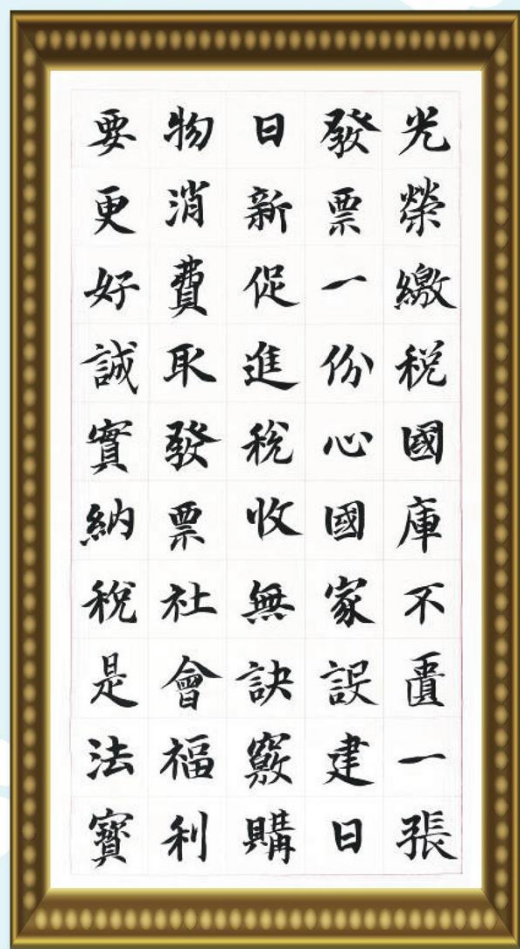 光榮繳税國庫不匱一張
發票一份心國家設建日
日新促進稅收無訣竅購
物消費取發票社會福利
要更好誠實納稅是法寶